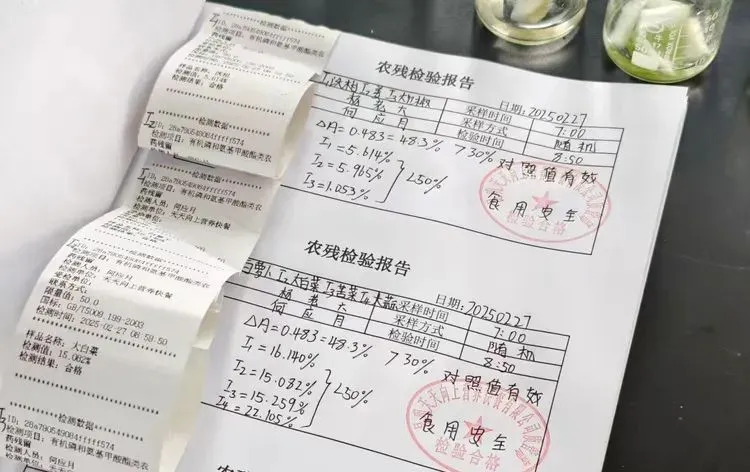 **********检测数据**********
样品名称：
检测值：5.614%
检测结果：合格
I2
**********检测数据**********
ID：28a790549084ffffff574
检测项目：有机磷和氨基甲酸酯类农
药残留
**********检测数据**********
ID：28a790549084ffffff574
检测项目：有机磷和氨基甲酸酯类农
药残留
检测人员：何应月
检测单位：天天向上营养快餐
检测项目：有机磷和氨基甲酸酯类农
药残留
检测人员：何应月
检测单位：天天向上营养快餐
受检单位：
联系方式：
限量值：50.0
国标：GB/T5009.199-2003
检测时间：2025-02-27 08:59:50
样品名称：大白菜
检测值：15.082%
检测结果：合格
**********检测数据**********
ID：28a790549084ffffff574
检测项目：有机磷和氨基甲酸酯类农
药残留
检测人员：何应月
农残检验报告
日期：20250227
采样时间 7:00
杨老大 采样方式 随机
何应月 检验时间 8:50
△A=0.483=48.3% 730%
对照值有效
I1=5.614%
I2=5.965%
I3=1.053%
L50%
食用安全
检验合格
农残检验报告
日期：20250227
白萝卜 I2大白菜 I3苦菜 I4大蒜 采样时间 7:00
杨老大 采样方式 随机
何应月 检验时间 8:50
△A=0.483=48.3% 730%
对照值有效
I1=16.140%
I2=15.082%
I3=15.259%
I4=22.105%
L50%
食用安全
检验合格
农残检验报告